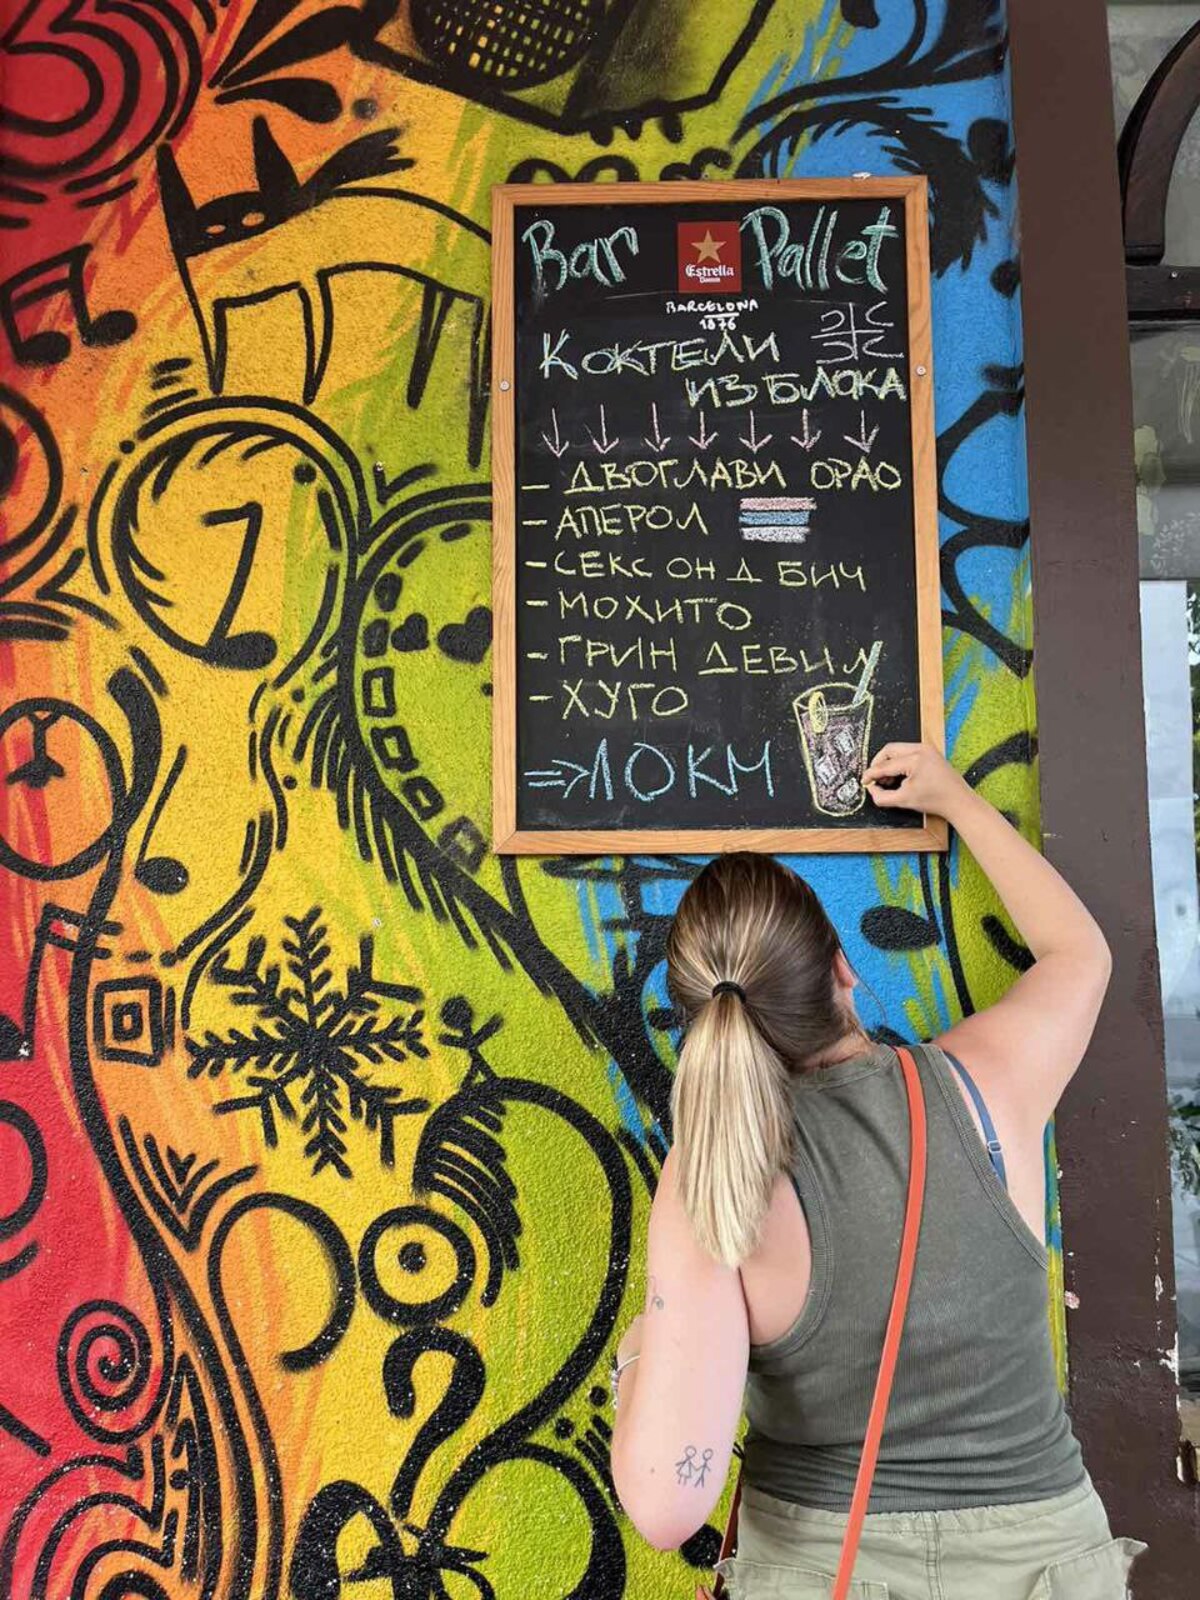 Bar Estrella Damm Pallet
BARCELONA
1876
КОКТЕЛИ
ИЗ БЛОКА
- ДВОГЛАВИ ОРАО
- АПЕРОЛ
- СЕКС ОН Д БИЧ
- МОХИТО
- ГРИН ДЕВИЛ
- ХУГО
⇒ 1ОКМ